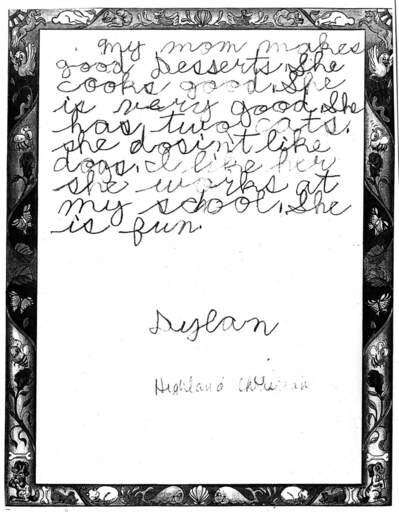 . My mom makes
good Desserts. She
cooks good. She
is very good. She
has two cats.
she dosin't like
dogs. I like her
she works at
my school. She
is fun.
Dylan
Highland Christian